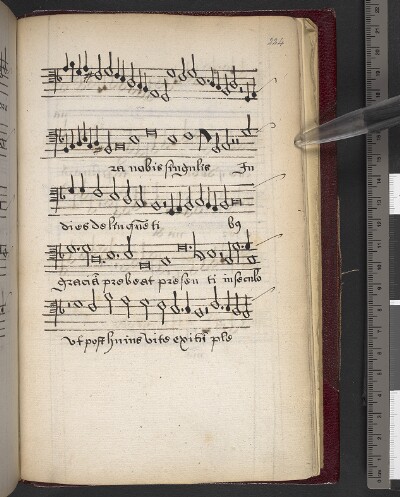 224
ra nobis singulis In
dies delinquēti bꝫ
graciā prebeat presen ti in seculo
vt post huius vite exitū ple